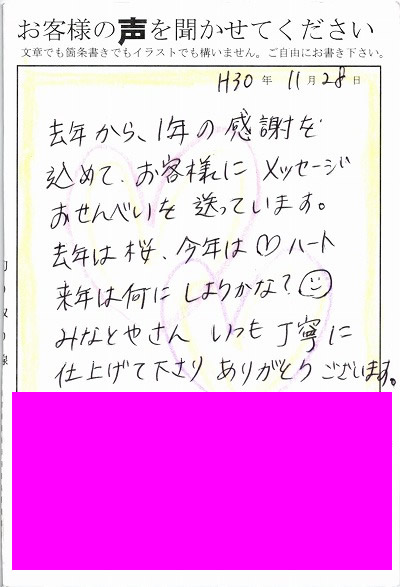 お客様の声を聞かせてください
文章でも箇条書きでもイラストでも構いません。ご自由にお書き下さい。
H30年 11月28日
去年から、1年の感謝を
込めて、お客様にメッセージ
おせんべいを送っています。
去年は桜、今年は♡ハート
来年は何にしようかな?☺
みなとやさんいつも丁寧に
仕上げて下さりありがとうございます。